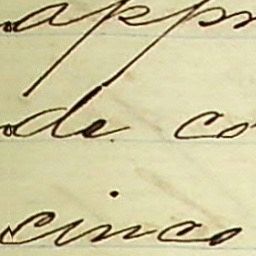 appr
de co
cinco